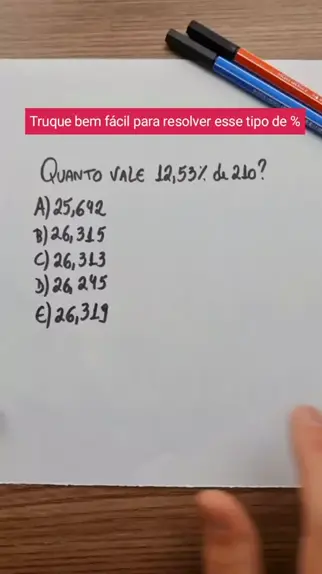 Truque bem fácil para resolver esse tipo de %
QUANTO VALE 12,53% de 210?
A) 25,642
B) 26,315
C) 26,313
D) 26,245
E) 26,319